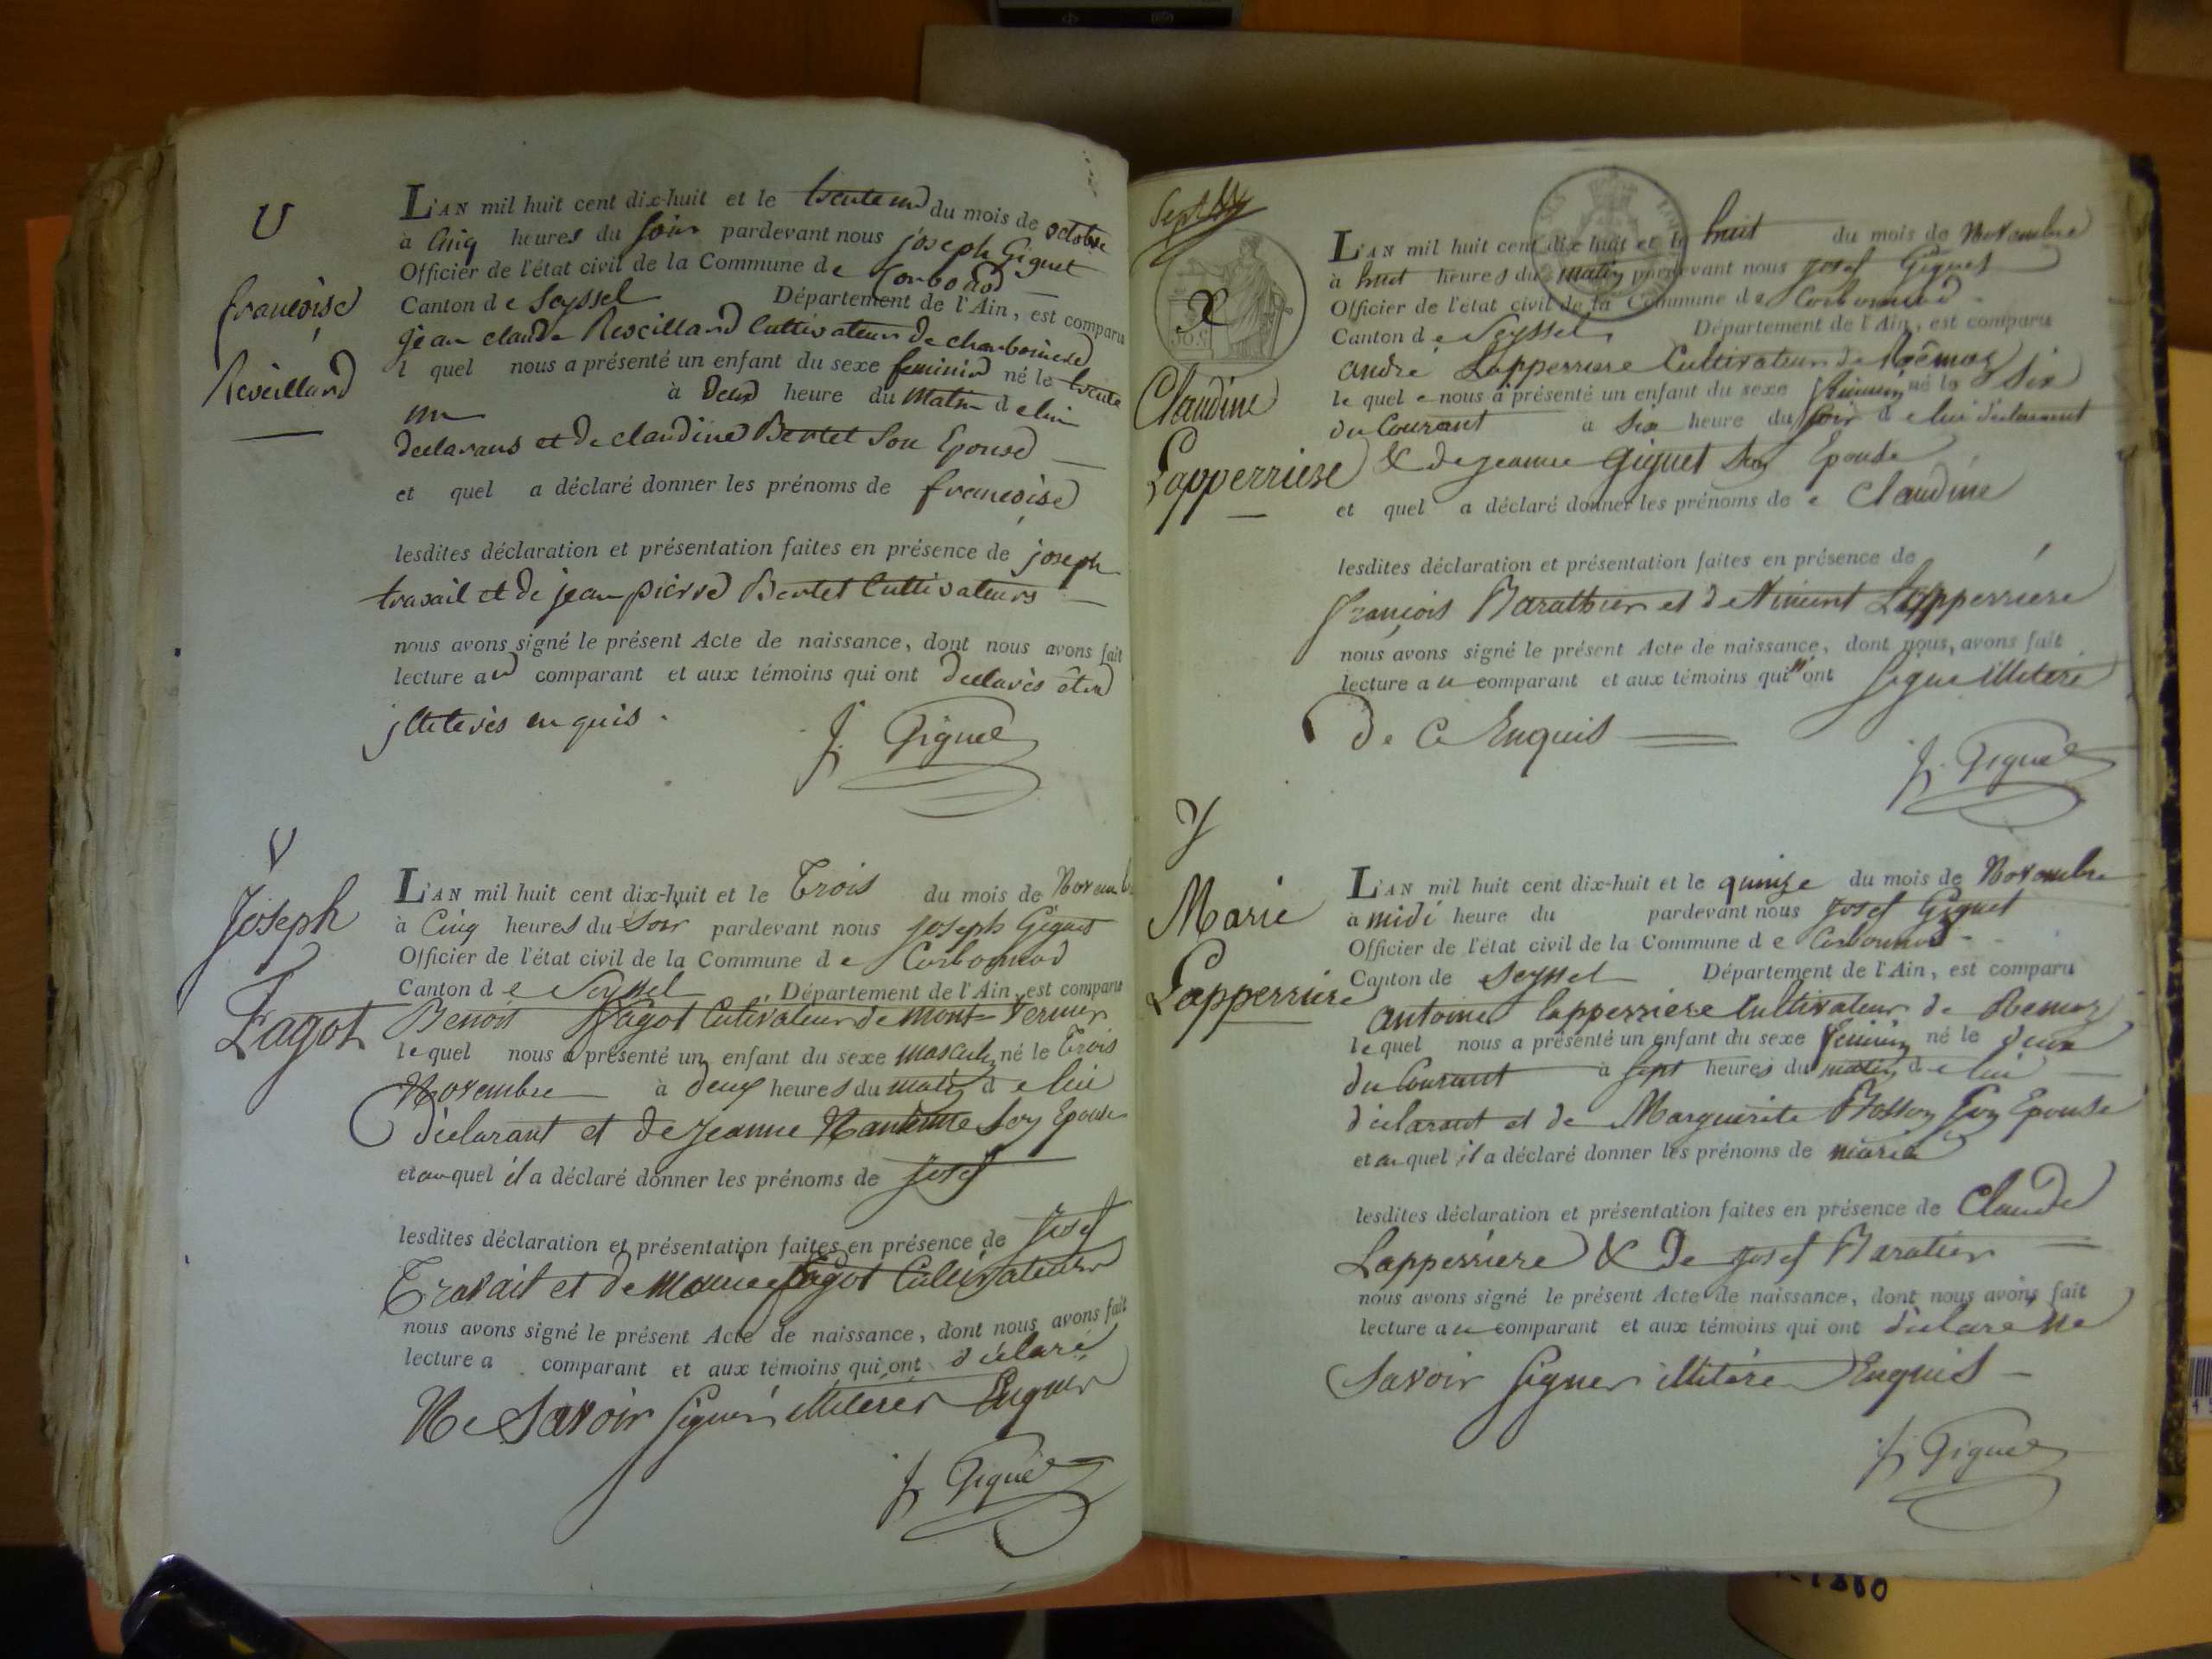 U
françoise
Reveillard
L'AN mil huit cent dix-huit et le trente un du mois de octobre
à cinq heures du soir pardevant nous joseph Giguet
Officier de l'état civil de la Commune de Corbonod
Canton de Seyssel Département de l'Ain, est comparu
jean claude Reveillard Cultivateur de charbonnere
l quel nous a présenté un enfant du sexe feminin né le trente
un à deux heure du matin de lui
declarans et de claudine Bertet son Epouse
et quel a déclaré donner les prénoms de françoise
lesdites déclaration et présentation faites en présence de joseph
travail et de jean pierre Bertet Cultivateurs
nous avons signé le présent Acte de naissance, dont nous avons fait
lecture au comparant et aux témoins qui ont declarés être
jlleterés enquis.
J. Giguet
V
Joseph
Fagot
L'AN mil huit cent dix-huit et le Trois du mois de Novembre
à Cinq heures du Soir pardevant nous joseph Giguet
Officier de l'état civil de la Commune de Corbonnod
Canton de Seyssel Département de l'Ain, est comparu
Benoit fagot Cultivateur de mont
lequel nous a présenté un enfant du sexe masculin né le Trois
Novembre à deux heures du matin de lui
déclarant et de jeanne son Epouse
et au quel il a déclaré donner les prénoms de Josef
lesdites déclaration et présentation faites en présence de Josef
Travail et de fagot Cultivateurs
nous avons signé le présent Acte de naissance, dont nous avons fait
lecture a comparant et aux témoins qui ont déclaré
Ne Savoir signer illiteres
J. Giguet
Sept
X
Claudine
Lapperriere
L'AN mil huit cent dix-huit et le huit du mois de Novembre
à huit heures du matin pardevant nous josef Giguet
Officier de l'état civil de la Commune de Corbonnod
Canton de Seyssel Département de l'Ain, est comparu
andré Lapperriere Cultivateur de Rêmoz
le quel nous a présenté un enfant du sexe féminin né le Six
du Courant a Six heure du soir de lui déclarant
& de jeanne Giguet son Epouse
et quel a déclaré donner les prénoms de Claudine
lesdites déclaration et présentation faites en présence de
françois Barathier et de Vincent Lapperriére
nous avons signé le présent Acte de naissance, dont nous avons fait
lecture au comparant et aux témoins qui n'ont signe illitere
De Ce Enquis
J. Giguet
Y
Marie
Lapperriere
L'AN mil huit cent dix-huit et le quinze du mois de Novembre
à midi heure du pardevant nous josef Giguet
Officier de l'état civil de la Commune de Corbonnod
Canton de Seyssel Département de l'Ain, est comparu
antoine lapperriere Cultivateur de Remoz
le quel nous a présenté un enfant du sexe féminin né le deux
du Courant à sept heures du matin de lui
déclarant et de Marguerite son Epouse
et au quel il a déclaré donner les prénoms de marie
lesdites déclaration et présentation faites en présence de Claude
Lapperriere & De josef Baratier
nous avons signé le présent Acte de naissance, dont nous avons fait
lecture au comparant et aux témoins qui ont déclaré Ne
Savoir signer illitére Enquis
J. Giguet